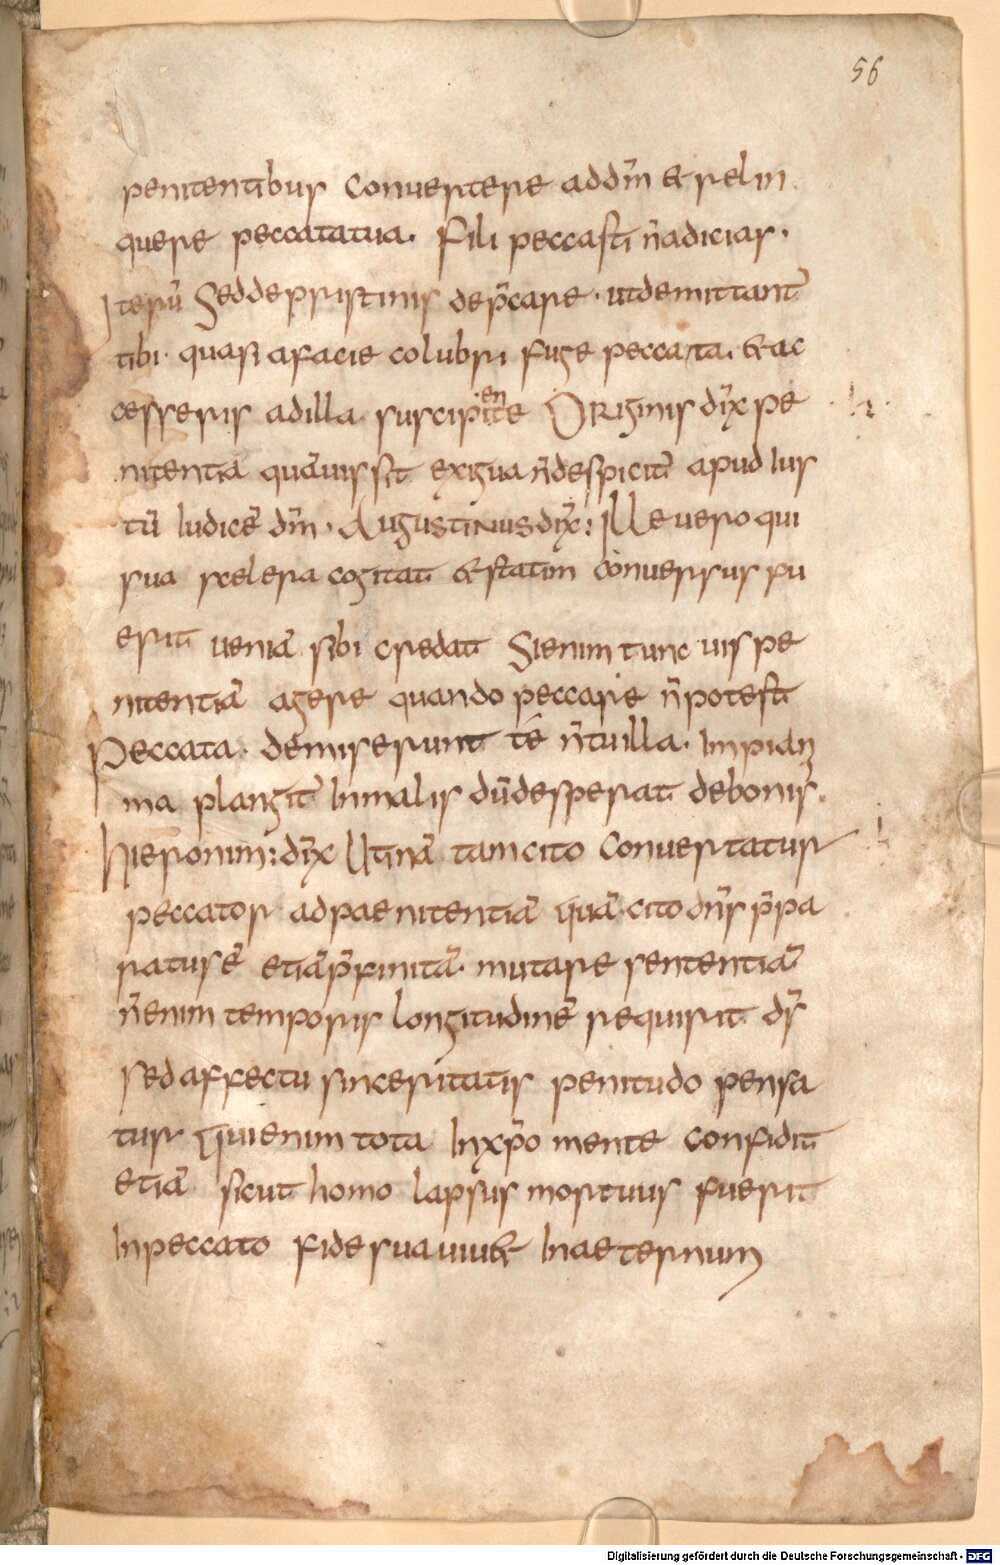 56
penitentibus Conuertere addm̄ & relin
quere peccatatua. Fili peccasti n̄adicias.
Iterū Seddepristinis dep̄care. utdemittant̄
tibi. quasi afacie colubri fuge peccata. & ac
cesseris adilla. suscipien̄te Origınis dix̄ pe
nitentia quāuis sit exigua n̄despicit̄ apud Ius
tū Iudicē dm̄. Augustinus dix̄: Ille uero qui
sua scelera cogitat &statim conuersus fu
erit ueniā sibi credat Sienim tunc uis pe
nitentiā agere quando peccare n̄potest
Peccata. demiserunt tē n̄tuilla. Impian
ma plangit̄ Inmalis dūdesperat debonis.
Hieronim: dix̄ Utinā tamcito Conuertatur
peccator adpaenitentiā quā.cito dn̄s p̄pa
ratusē etiāp̄finitā. mutare sententiā
n̄enim temporis longitudinē requirit ds̄
sedaffectu sinceritatis penitudo pensa
tur Quienim tota Inxp̄o mente confidit
etiā sicut homo lapsus mortuus fuerit
Inpeccato fidesuauiu& Inaeternum
Digitalisierung gefördert durch die Deutsche Forschungsgemeinschaft - DFG